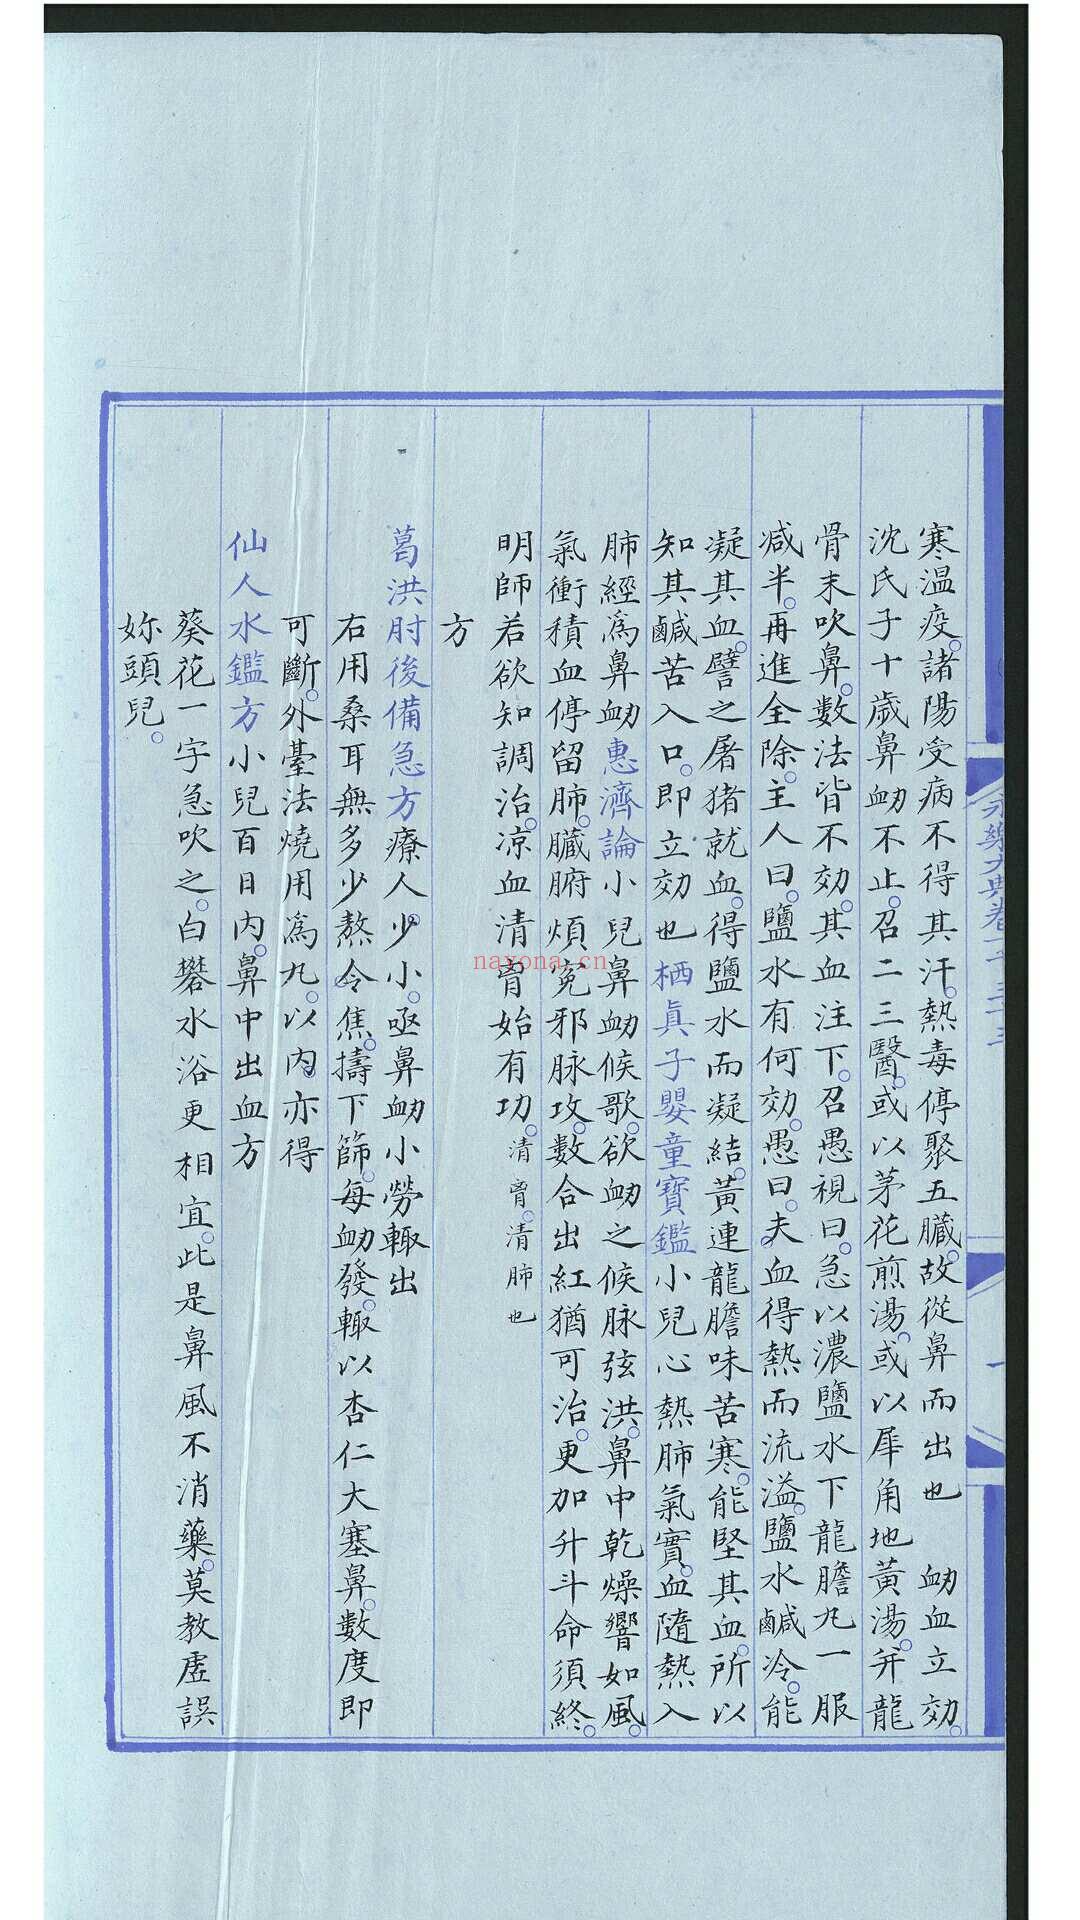 寒温疫。諸陽受病不得其汗。熱毒停聚五臟。故從鼻而出也　衂血立効。
沈氏子十歲鼻衂不止。召二三醫。或以茅花煎湯。或以犀角地黄湯。并龍
骨末吹鼻。數法皆不効。其血注下。召愚視曰。急以濃鹽水下龍膽丸一服
减半。再進全除。主人曰。鹽水有何効。愚曰。夫血得熱而流溢。鹽水鹹冷。能
凝其血。譬之屠猪就血。得鹽水而凝結。黄連龍膽味苦寒。能堅其血。所以
知其鹹苦入口。即立効也　栖真子嬰童寶鑑小兒心熱肺氣實。血隨熱入
肺經爲鼻衂惠濟論小兒鼻衂候歌。欲衂之候脉弦洪。鼻中乾燥響如風。
氣衝積血停留肺。臟腑煩寃邪脉攻。數合出紅猶可治。更加升斗命須終。
明師若欲知調治。凉血清胷始有功。清胷。清肺也
方
葛洪肘後備急方療人。少小。亟鼻衂小勞輙出
右用桑耳無多少熬。令焦。擣下篩。每衂發。輙以杏仁大塞鼻。數度即
可斷。外臺法燒用爲丸。以内。亦得
仙人水鑑方小兒百日内。鼻中出血方
葵花一字急吹之。白礬水浴更相宜。此是鼻風不消藥。莫教虛誤
妳頭兒。
永樂大典卷一
一
nayona.cn